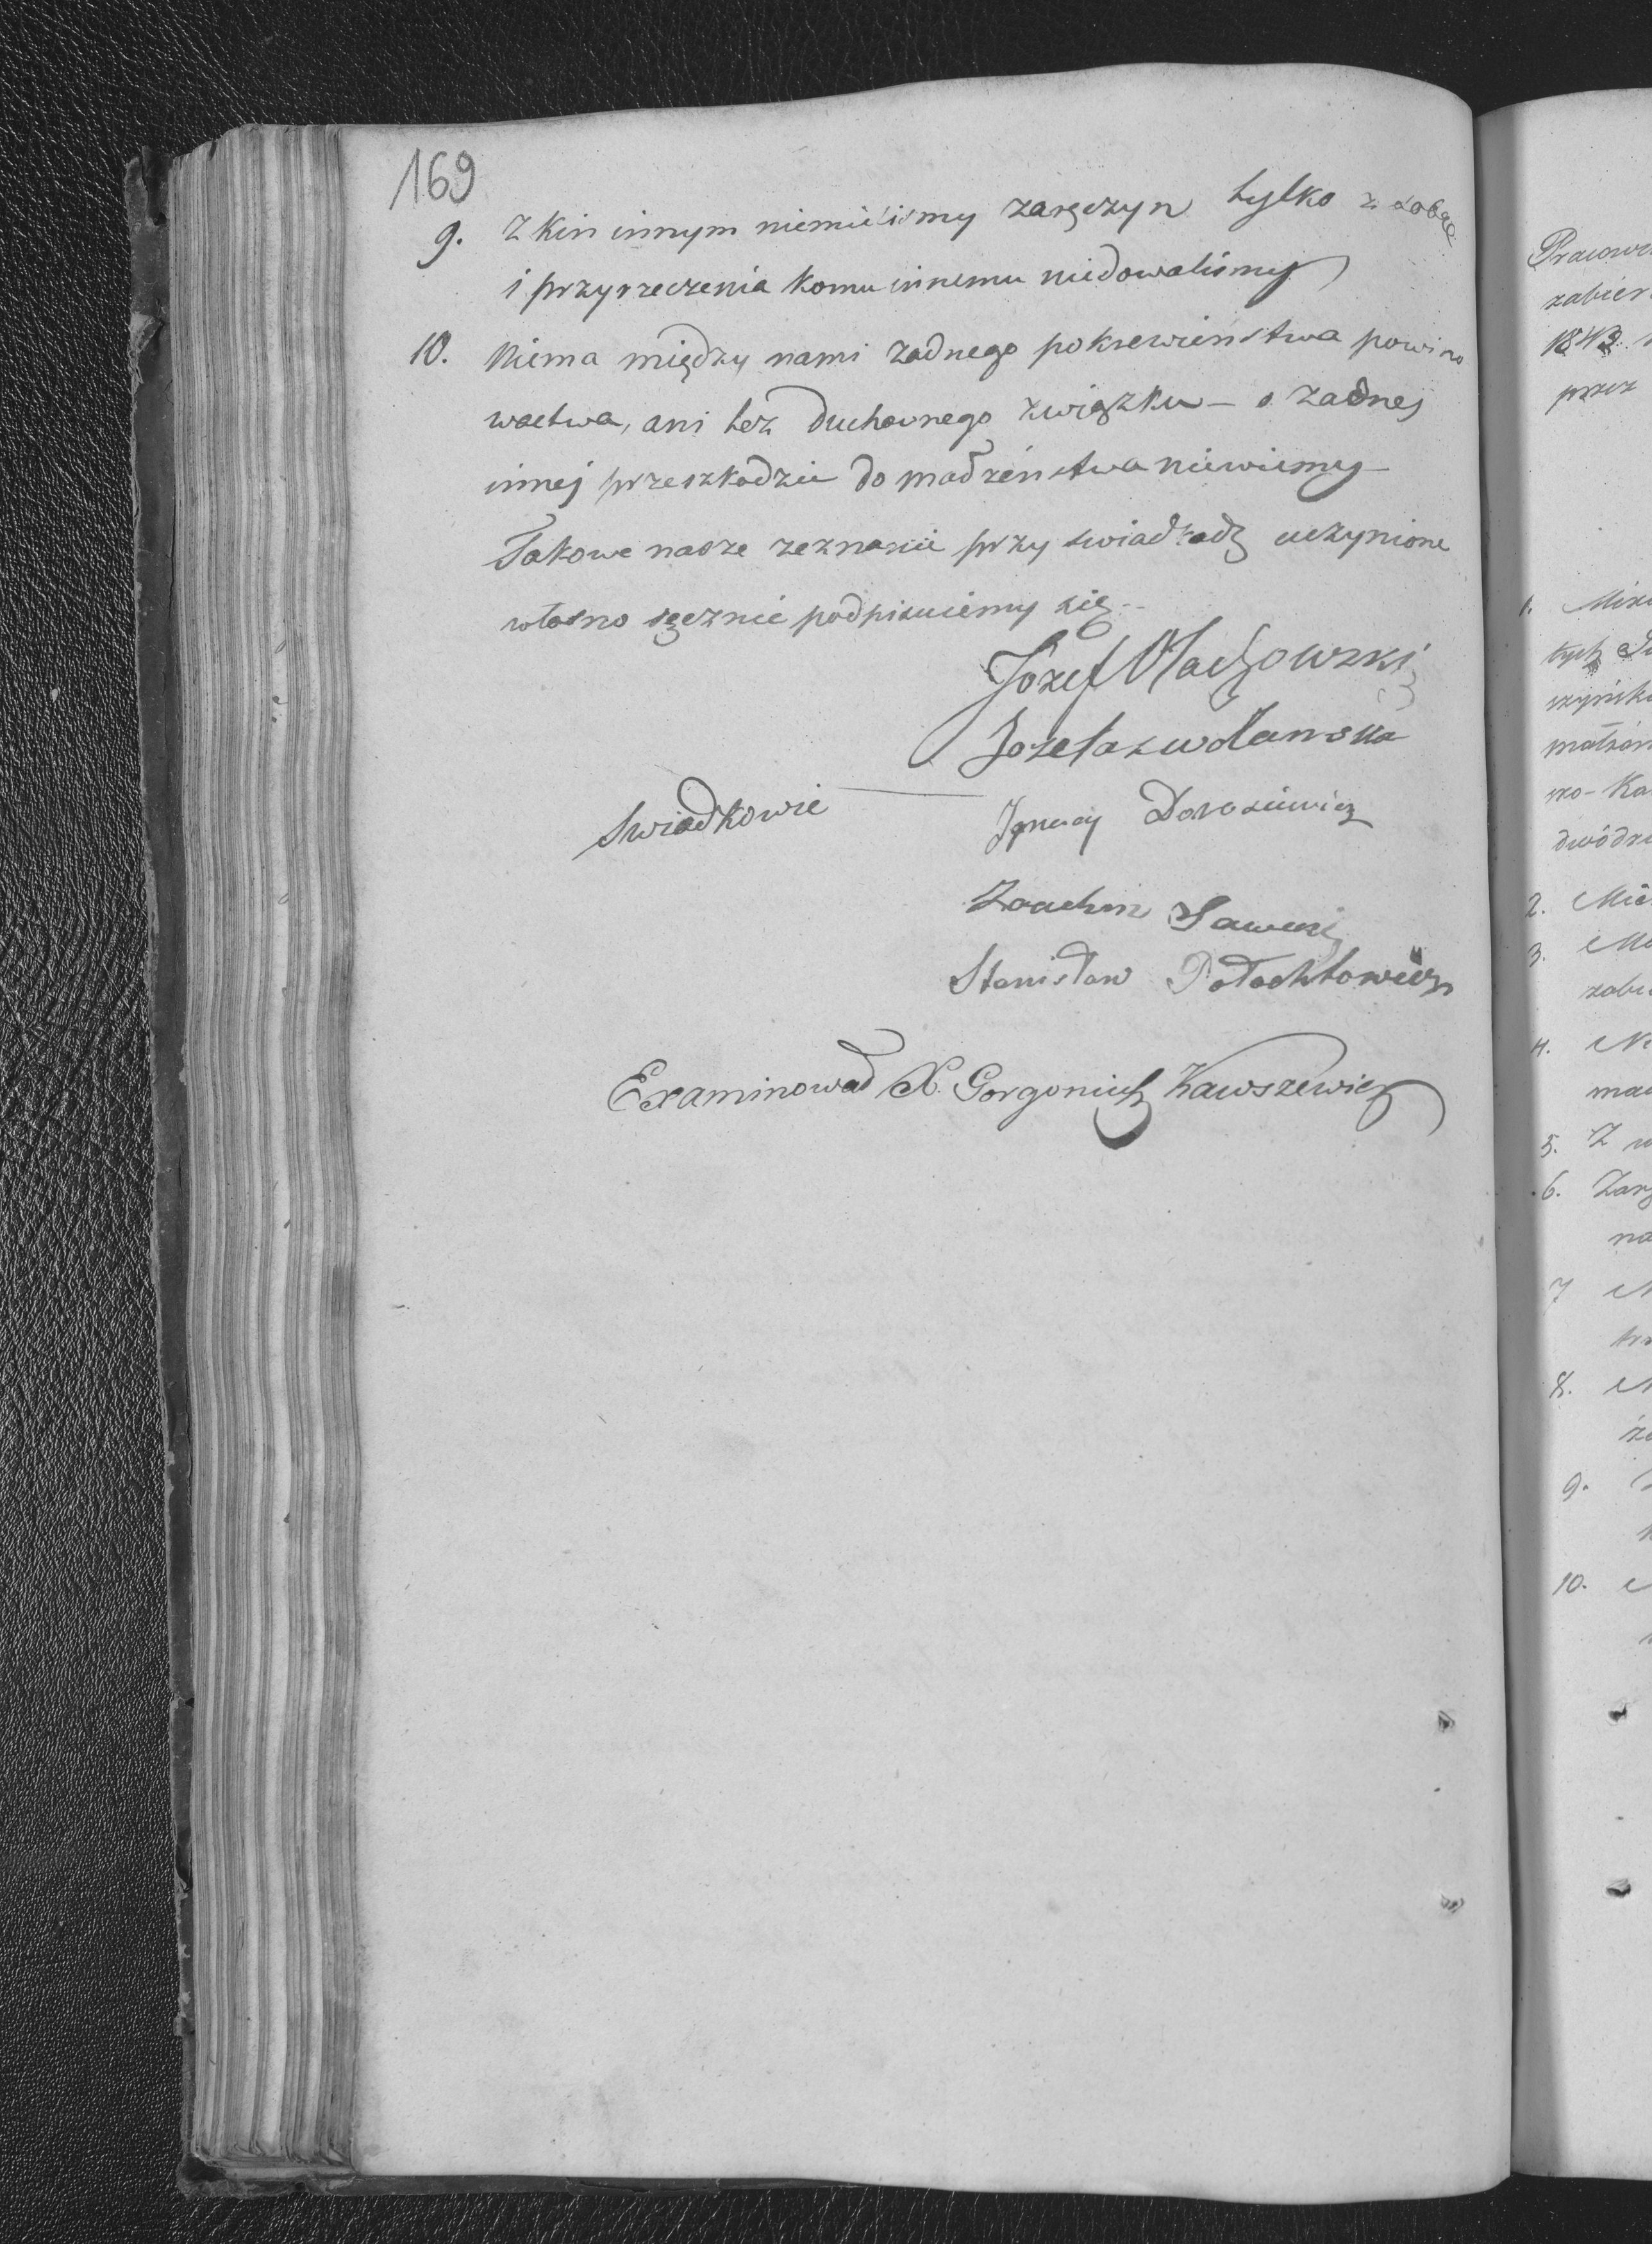 169
9. Z kim innym niemieliśmy zaręczyn tylko z sobą
i przyrzeczenia komu innemu niedowaliśmy
10. Niema między nami żadnego pokrewieństwa powino
wactwa, ani też duchownego związku – o żadnej
innej przeszkodzie do małżeństwa niewiemy
Takowe nasze zeznanie przy swiadkach uczynione
własno ręcznie podpisuiemy się
Józef Machowski
Jozefa zwolanska
Swiadkowie Ignacy Doroszewicz
Joachim Sawicki
Stanisław Połochtowicz
Examinował X. Gorgoniusz Kawszewicz
1843
przez
1.
2.
3.
4.
5. Z
6.
7
8.
9.
10.